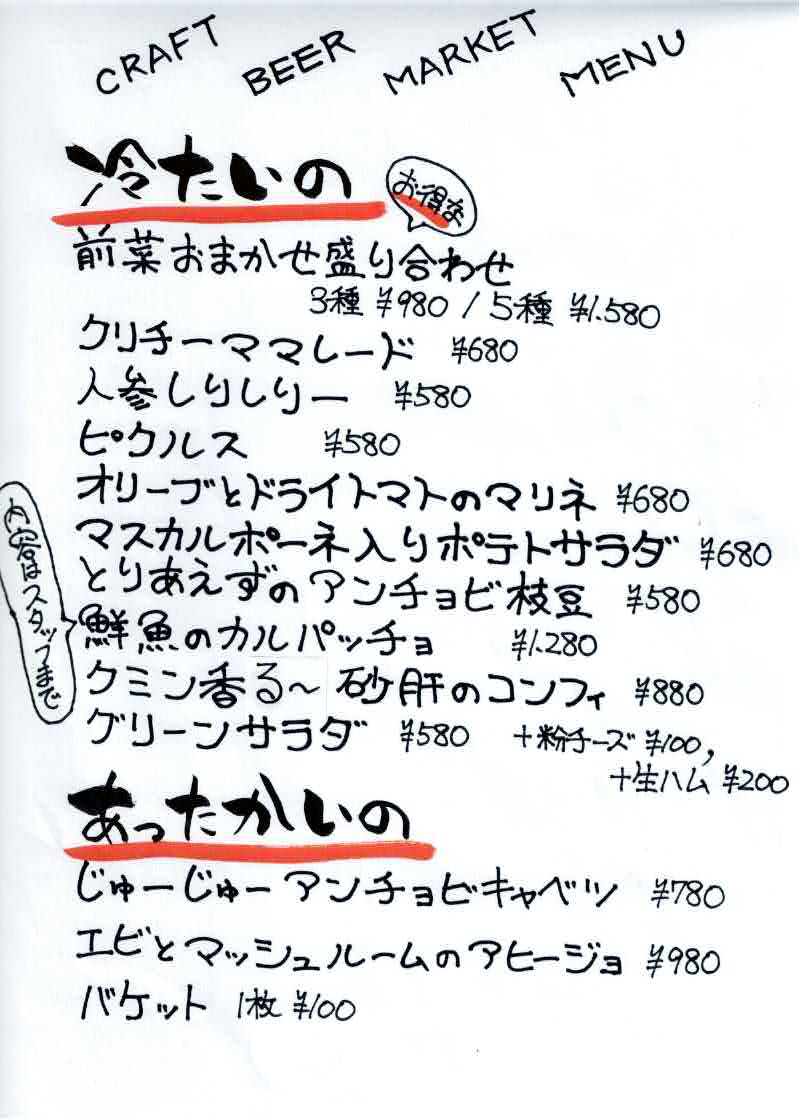 CRAFT BEER MARKET MENU
冷たいの
お得な
前菜おまかせ盛り合わせ
3種 ¥980 / 5種 ¥1.580
クリチーママレード ¥680
人参しりしりー ¥580
ピクルス ¥580
オリーブとドライトマトのマリネ ¥680
マスカルポーネ入りポテトサラダ ¥680
とりあえずのアンチョビ枝豆 ¥580
内容はスタッフまで
鮮魚のカルパッチョ ¥1.280
クミン香る〜砂肝のコンフィ ¥880
グリーンサラダ ¥580 +粉チーズ ¥100,
+生ハム ¥200
あったかいの
じゅーじゅーアンチョビキャベツ ¥780
エビとマッシュルームのアヒージョ ¥980
バケット 1枚 ¥100